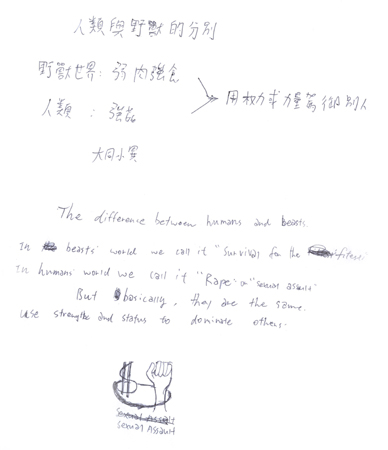 人類與野獸的分別
野獸世界: 弱肉強食
人類 : 強姦
用权力或力量駕御別人
大同小異
The difference between humans and beasts.
In beasts' world we call it "Survival for the fittest"
In humans' world we call it "Rape" or "sexual assault"
But basically, they are the same.
use strengths and status to dominate others.
$
Sexual Assault
Sexual Assault